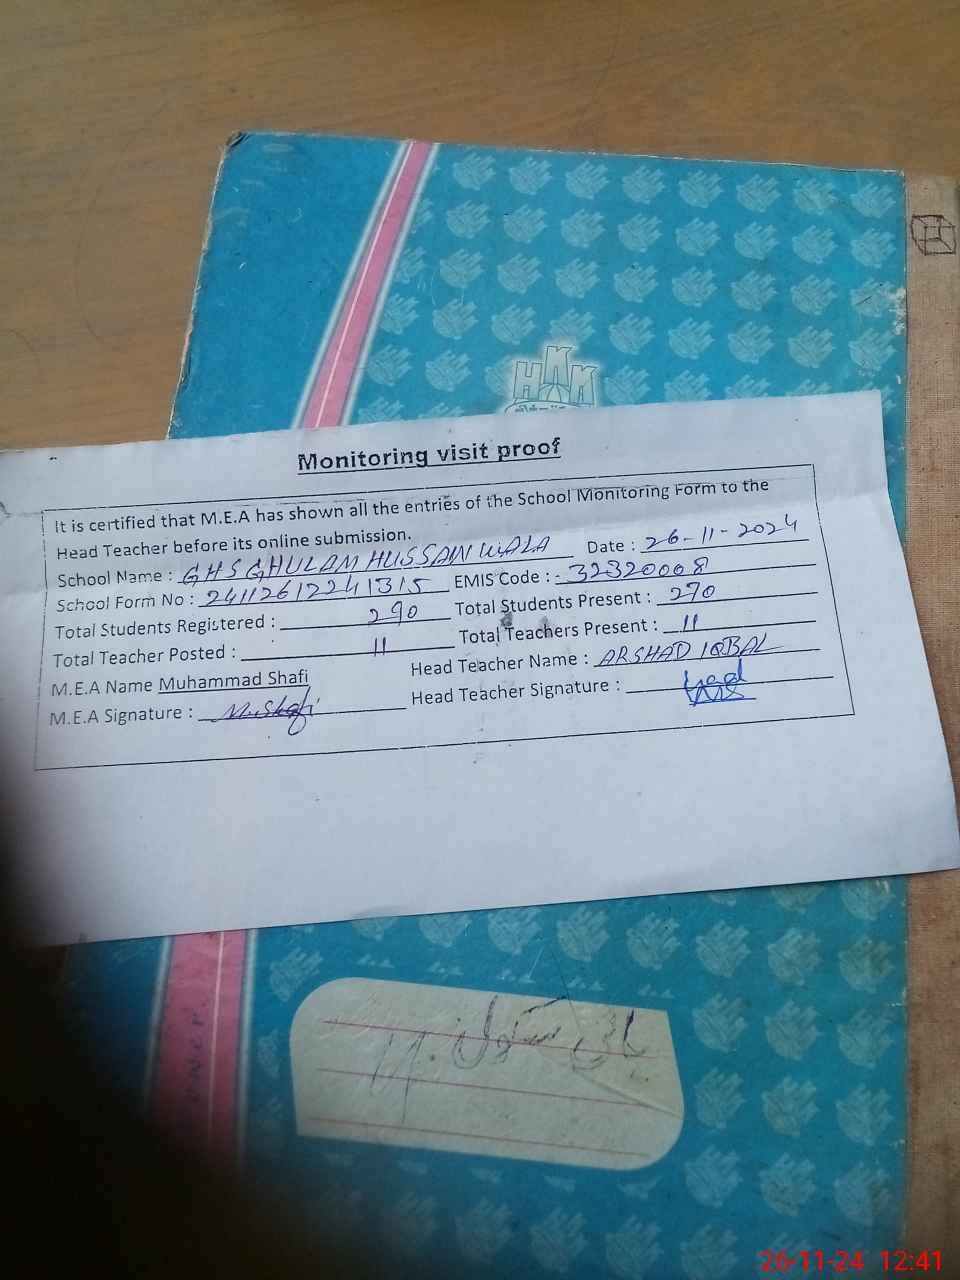 HKK
Monitoring visit proof
It is certified that M.E.A has shown all the entries of the School Monitoring Form to the
Head Teacher before its online submission.
School Name : GHS GHULAM HUSSAIN WALA Date : 26-11-2024
School Form No : 24112612241315 EMIS Code : - 32320008
Total Students Registered : 290 Total Students Present : 270
Total Teacher Posted : 11 Total Teachers Present : 11
M.E.A Name Muhammad Shafi Head Teacher Name : ARSHAD IQBAL
M.E.A Signature : M.Shafi Head Teacher Signature :
ہائی سکول
26-11-24 12:41